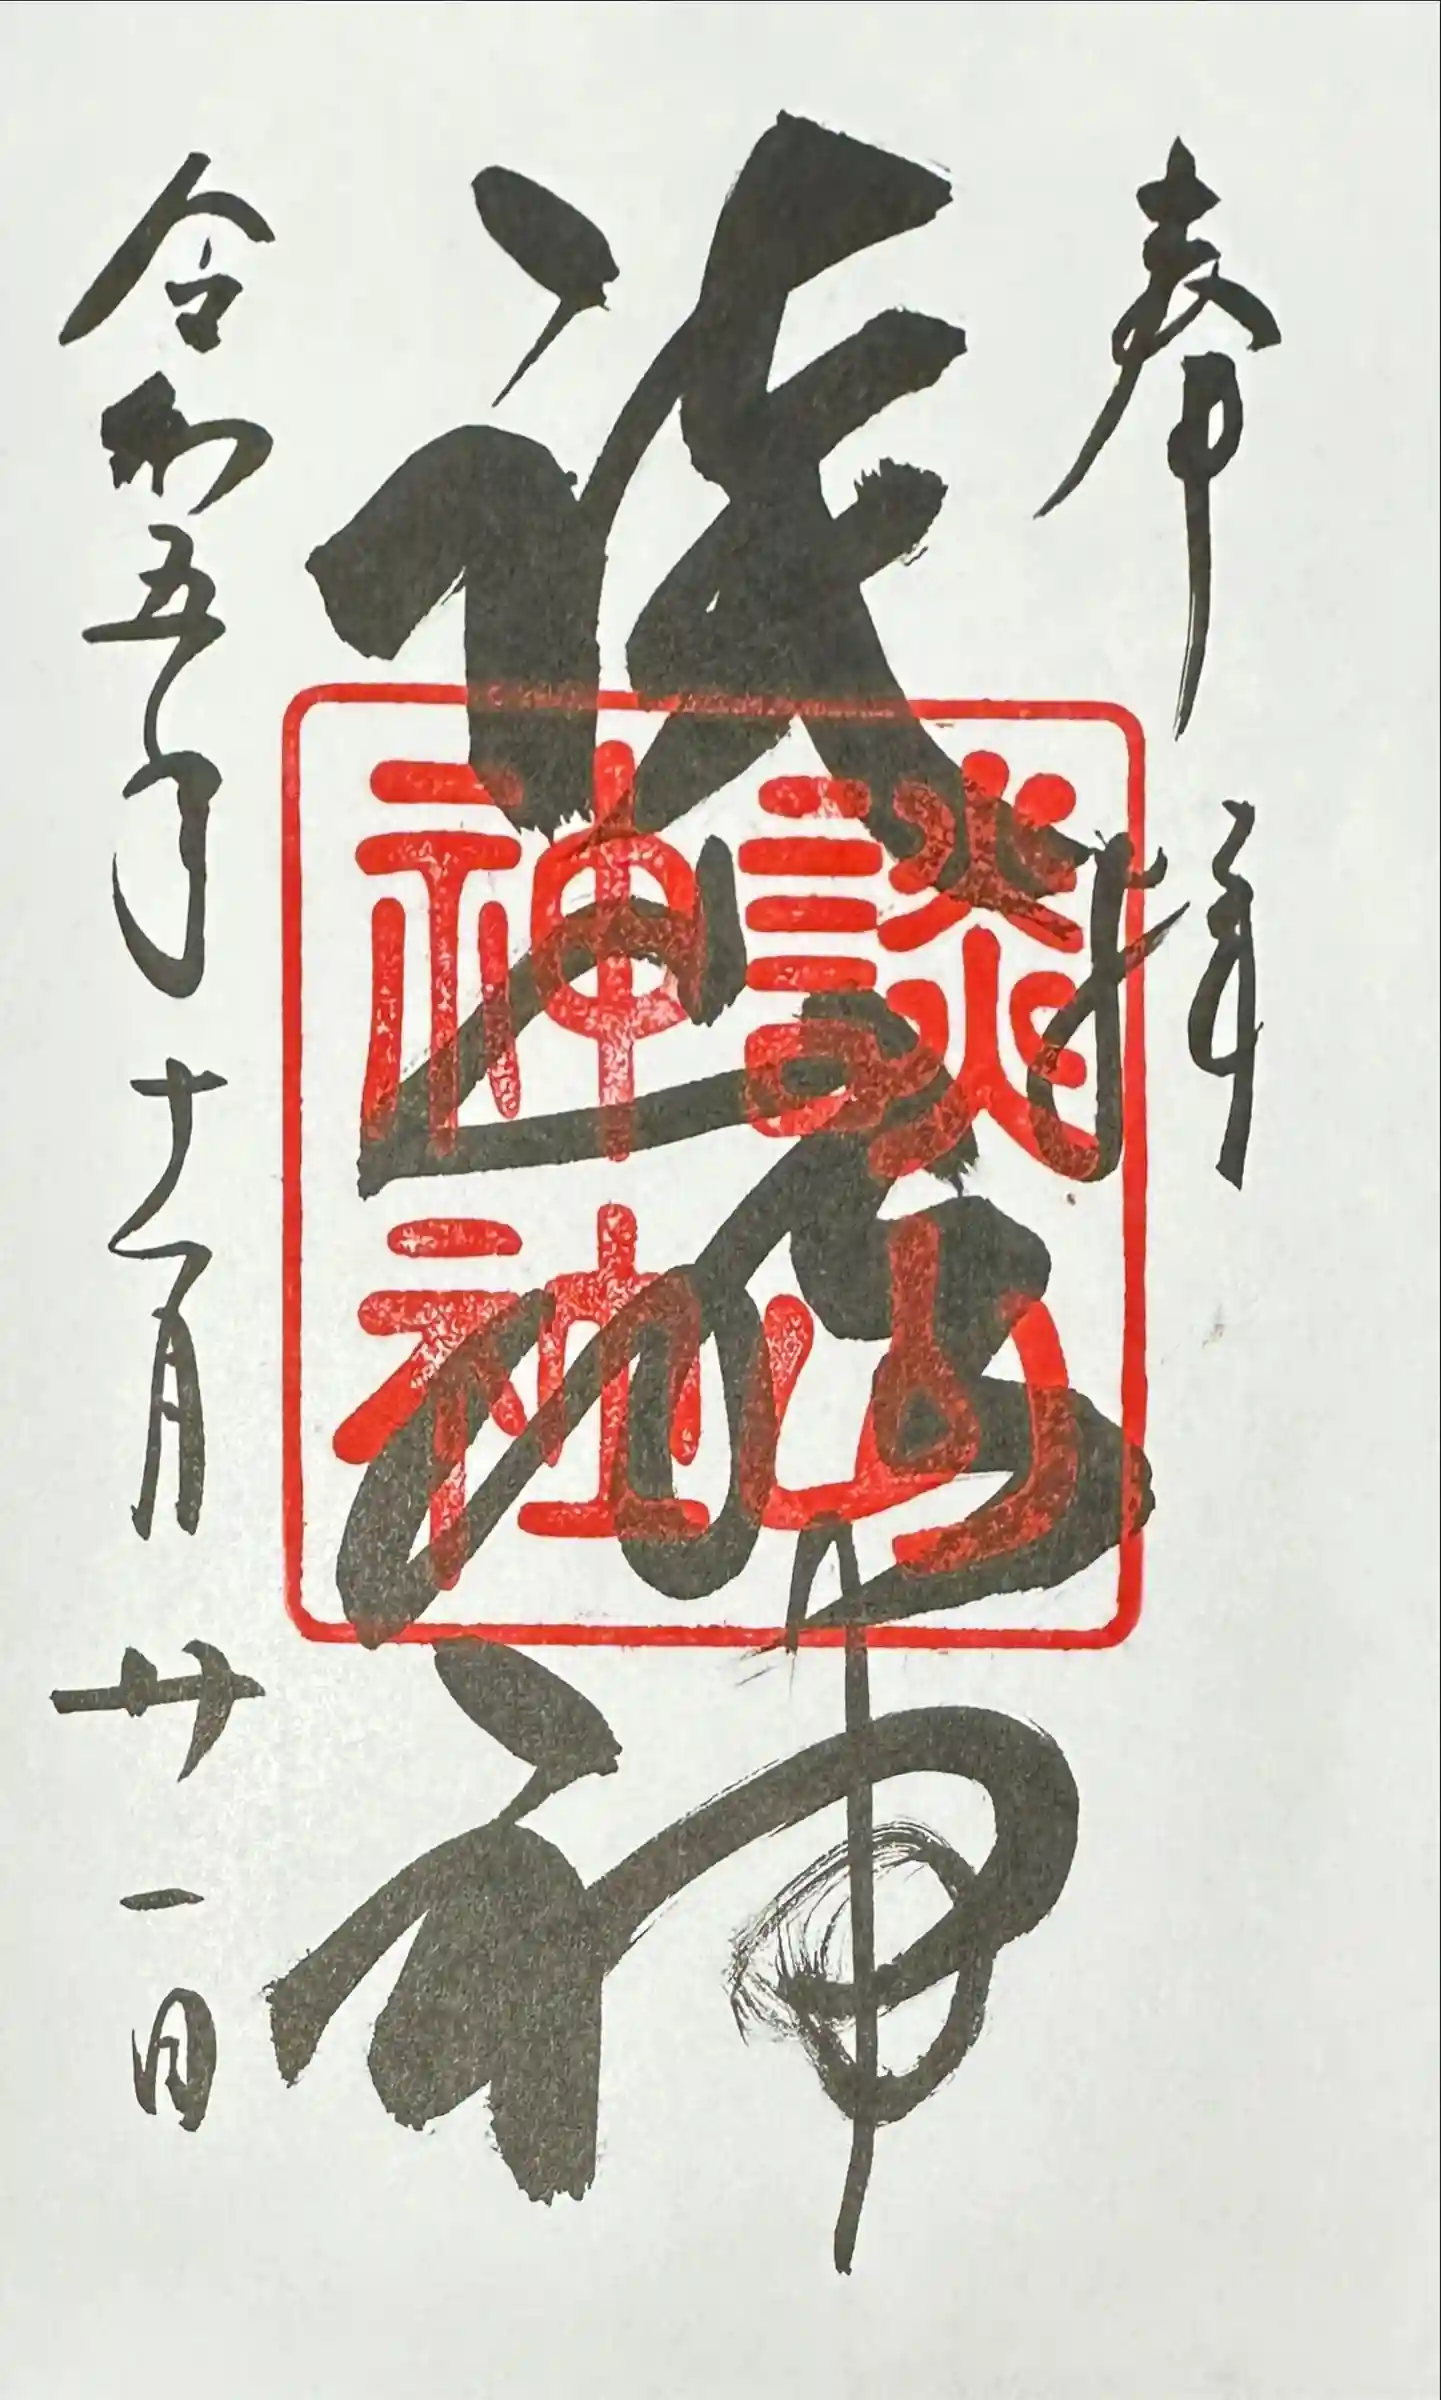 奉拝
神
談山
神社
令和五年十一月廿一日